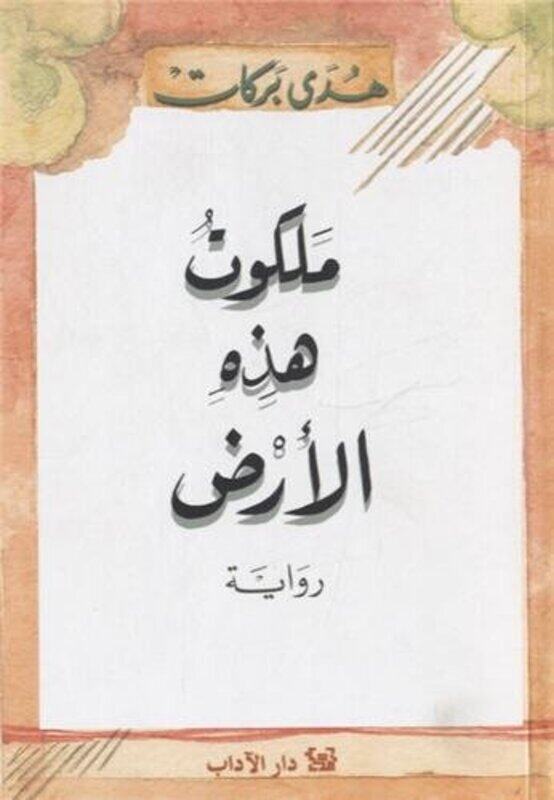 هُدَى بَرَكات
مَلَكوتُ
هذِهِ
الأَرْض
رِوَايَة
دار الآداب